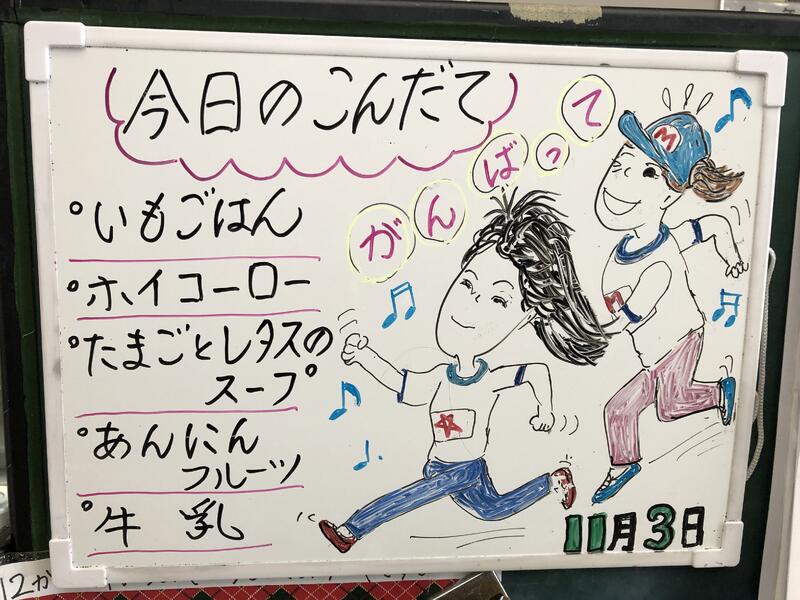 今日のこんだて
がんばって
M
°いもごはん
°ホイコーロー
°たまごとレタスの
スープ
°あんにん
フルーツ
°牛乳
M
11月3日
12か